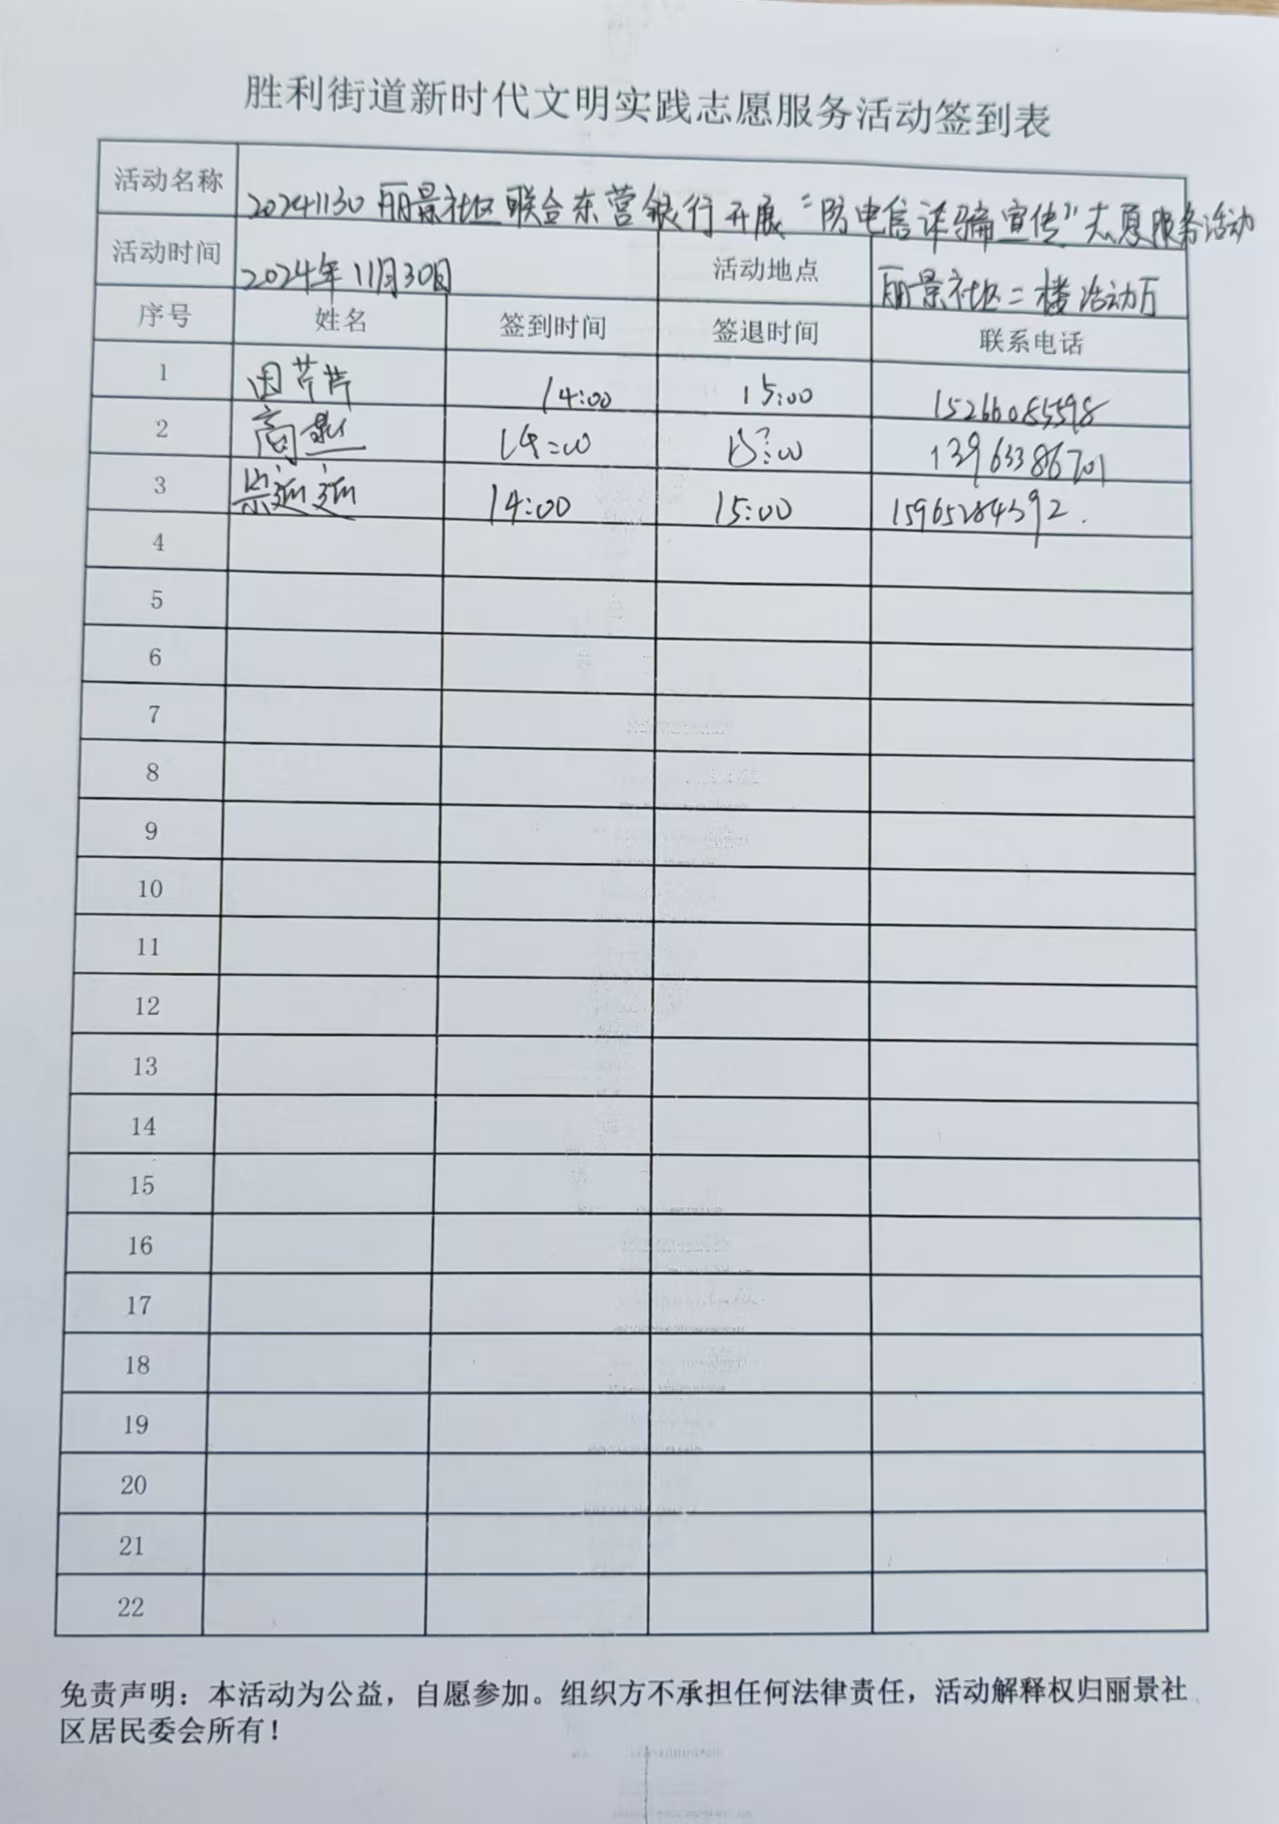 胜利街道新时代文明实践志愿服务活动签到表
活动名称 20241130丽景社区联合东营银行开展“防电信诈骗宣传”志愿服务活动
活动时间 2024年11月30日 活动地点 丽景社区二楼活动厅
序号 姓名 签到时间 签退时间 联系电话
1 田芹芹 14:00 15:00 15266085598
2 高燕 14:00 15:00 13963386701
3 崇迎迎 14:00 15:00 15965284392.
4
5
6
7
8
9
10
11
12
13
14
15
16
17
18
19
20
21
22
免责声明：本活动为公益，自愿参加。组织方不承担任何法律责任，活动解释权归丽景社
区居民委会所有！